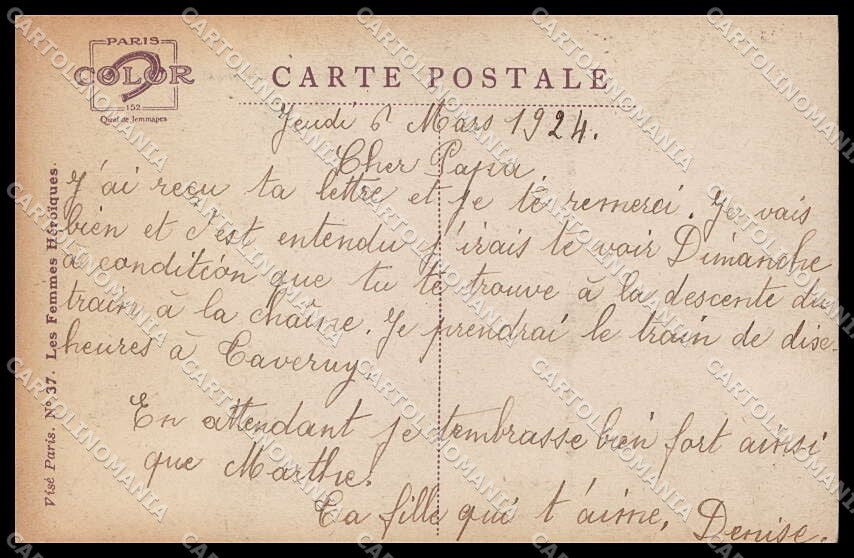 PARIS
COLOR
152
Quai de Jemmapes
CARTE POSTALE
Jeudi 6 Mars 1924.
Cher Papa,
J'ai reçu ta lettre et je te remerci. Je vais
bien et c'est entendu j'irais te voir Dimanche
a condition que tu te trouve à la descente du
train à la chaîne. Je prendrai le train de dise
heures à Taverny.
En attendant je t'embrasse bien fort ainsi
que Marthe.
Ta fille qui t'aime, Denise.
Visé Paris. No 37. Les Femmes Héroïques.
CARTOLINOMANIA